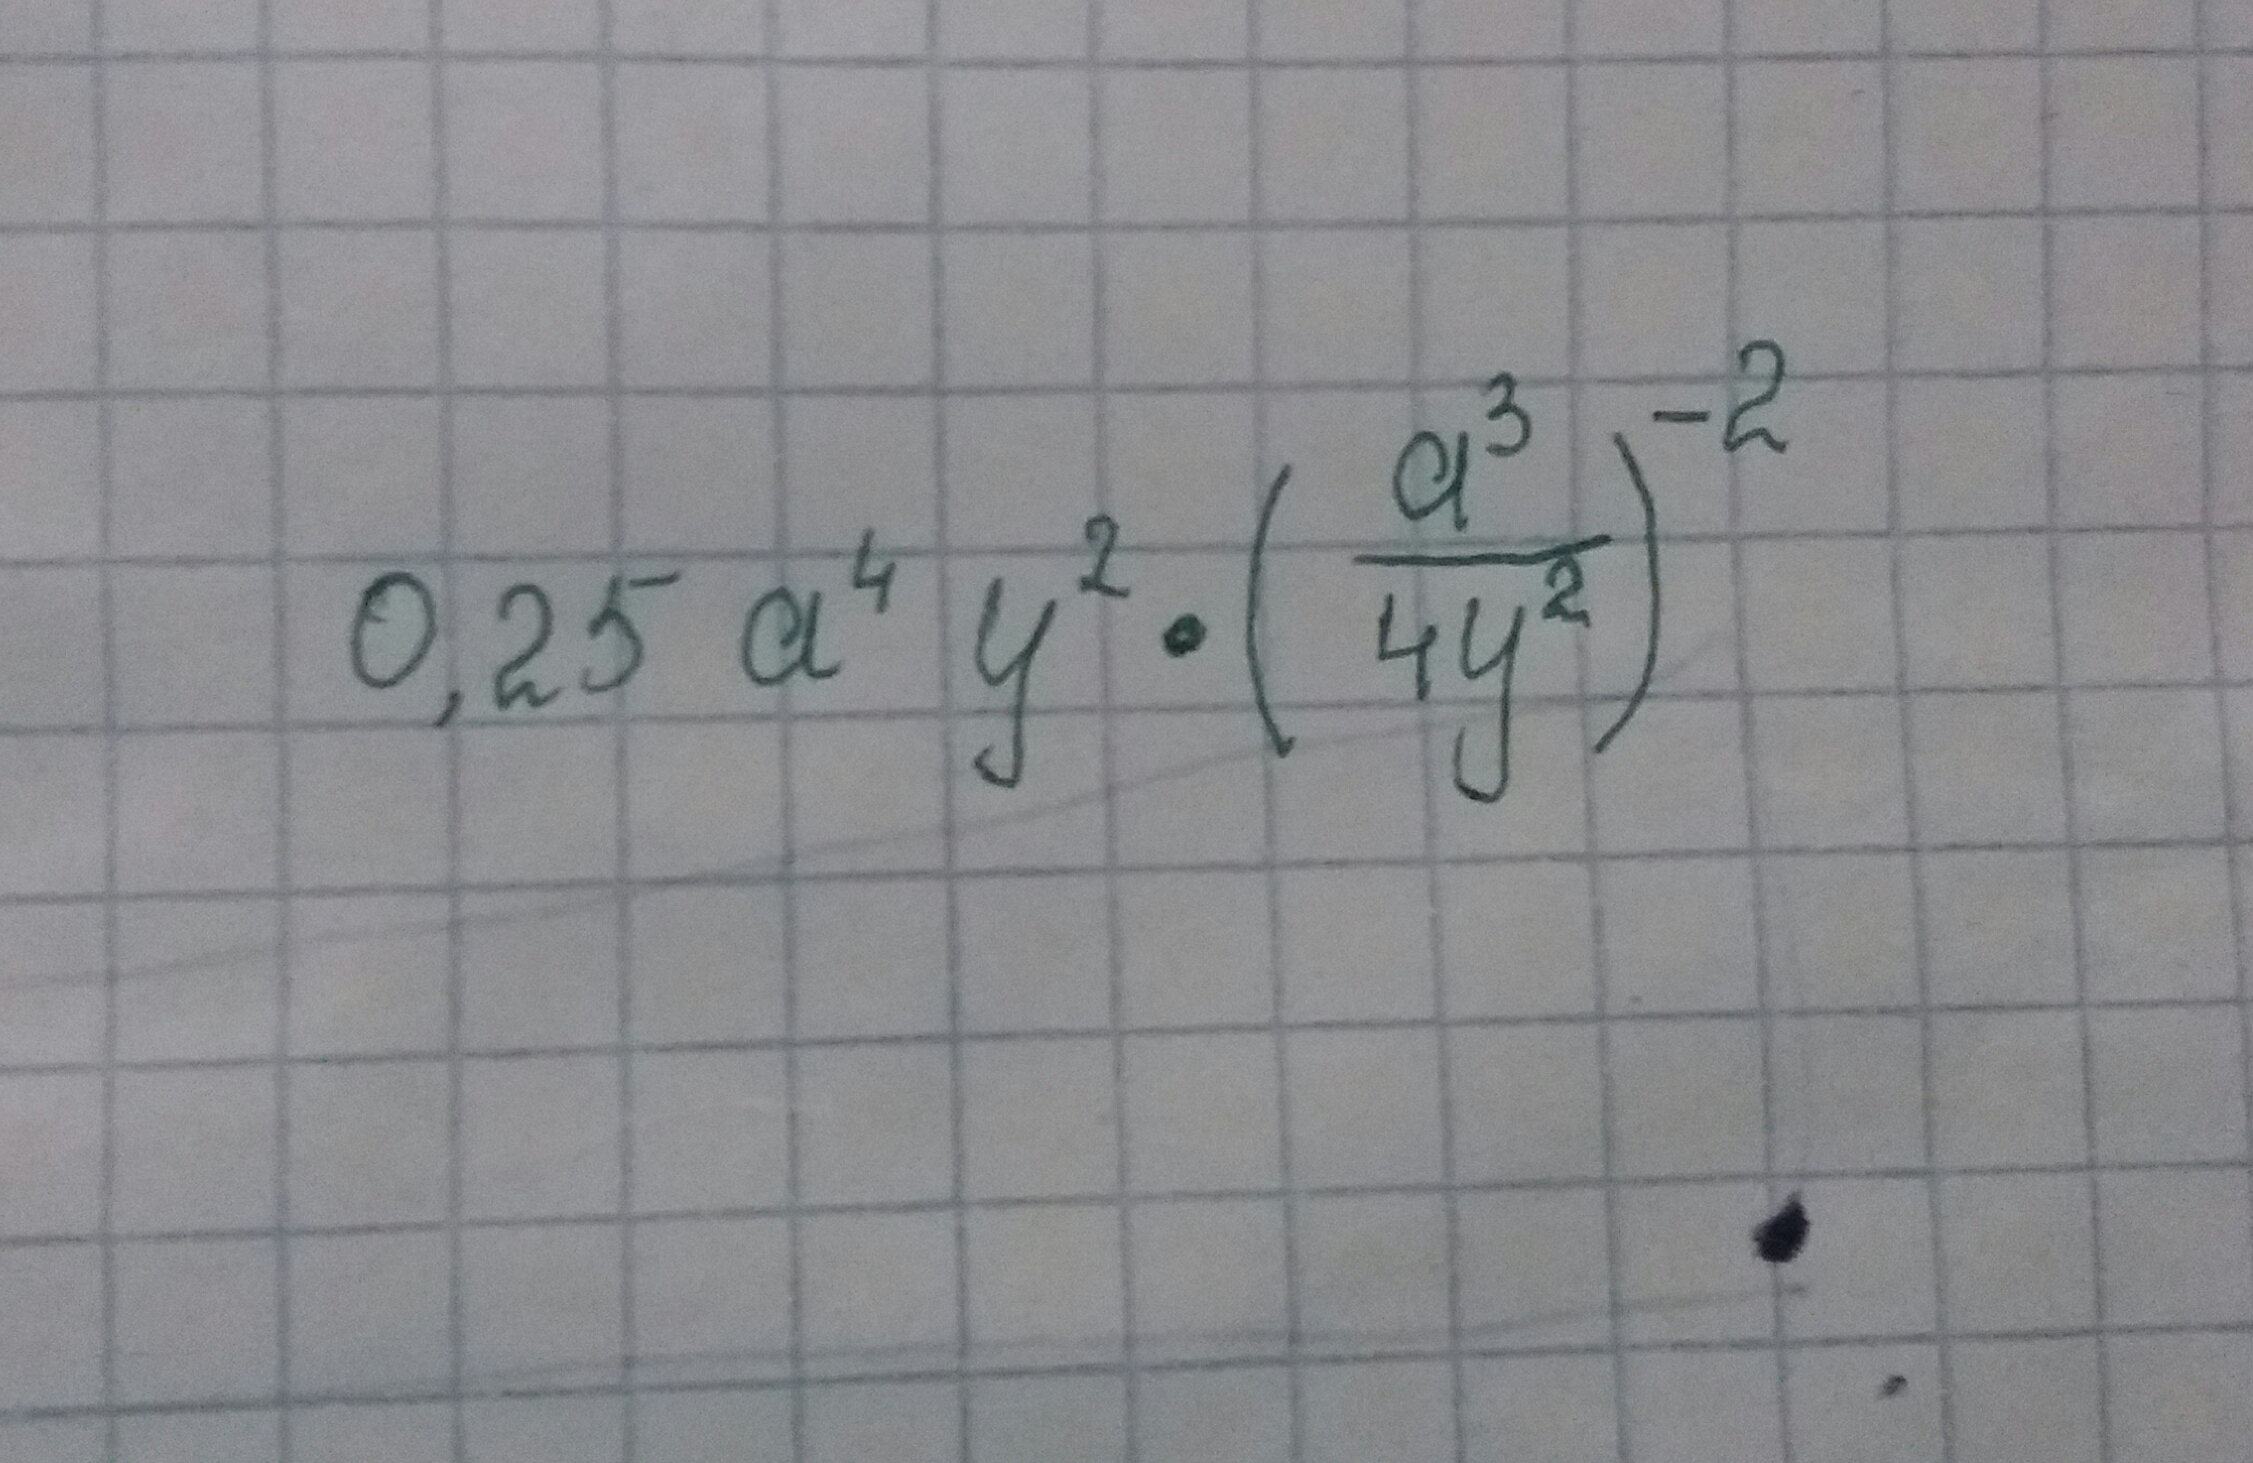 0,25 a⁴ y² • (a³/4y²)⁻²